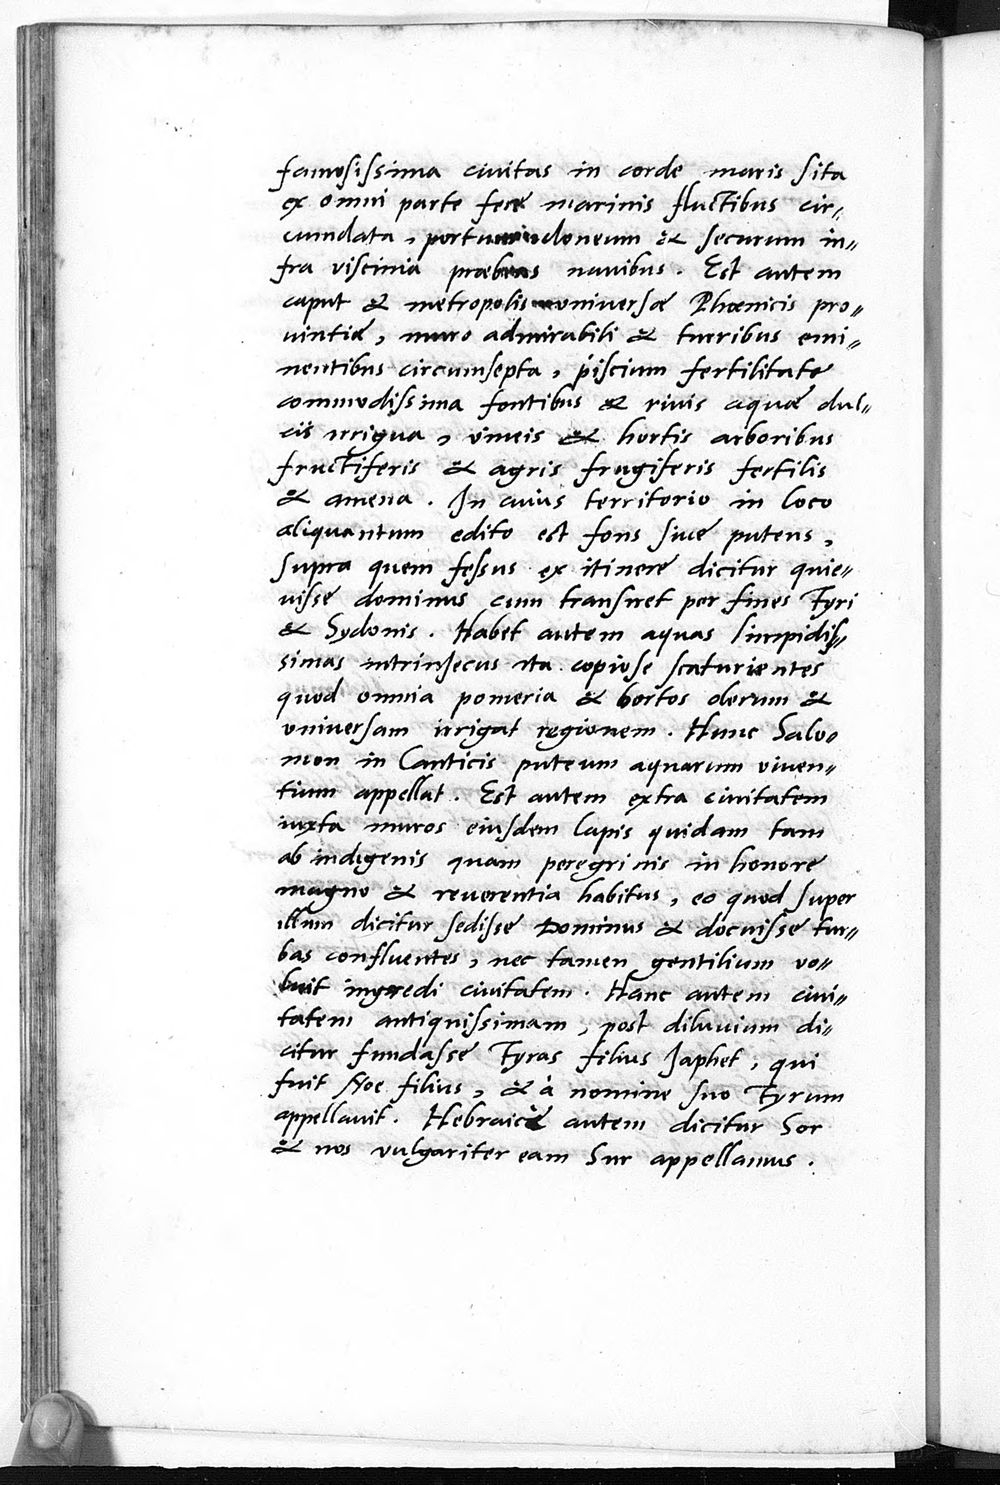 famosissima civitas in corde maris sita
ex omni parte feré marinis fluctibus cir=
cumdata, portum idoneum & securum in=
fra viscinia præbens navibus. Est autem
caput & metropolis universæ Phœnicis pro=
vintiæ, muro admirabili & turribus emi=
nentibus circumsepta, piscium fertilitate
commodissima fontibus & rivis aquæ dul=
cis irrigua, vineis & hortis arboribus
fructiferis & agris frugiferis fertilis
& amena. In cuius territorio in loco
aliquantum edito est fons sive puteus,
supra quem fessus ex itinere dicitur quie=
visse dominus cum transiret per fines Tyri
& Sydonis. Habet autem aquas limpidis=
simas intrinsecus ita copiose scaturientes
quod omnia pomeria & hortos olerum &
universam irrigat regionem. Hunc Salo=
mon in Canticis puteum aquarum viven=
tium appellat. Est autem extra civitatem
iuxta muros eiusdem lapis quidam tam
ab indigenis quam peregrinis in honore
magno & reverentia habitus, eo quod super
illum dicitur sedisse Dominus & docuisse tur=
bas confluentes, nec tamen gentilium vo=
luit ingredi civitatem. Hanc autem civi=
tatem antiquissimam, post diluvium di=
citur fundasse Tyras filius Japhet, qui
fuit Noe filius, & à nomine suo Tyrum
appellavit. Hebraicè autem dicitur Sor
& nos vulgariter eam Sur appellamus.